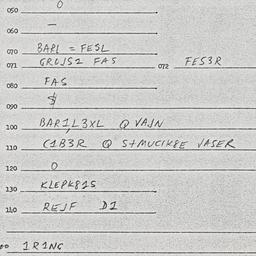 050 0
060 —
070 BARL = FESL
071 GRUJS2 FAS 072 FES3R
080 FAS
090 $
100 BAR1L3XL Q VAJN
110 C1B3R Q S+MUCIK8E VASER
120 0
130 KLEPK81S
140 REJF D1
1R1NG